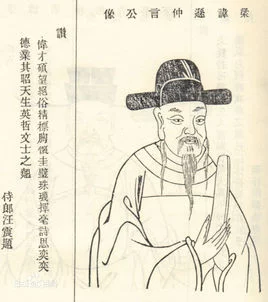 梁諱遜仲言公像
讚
偉才碩望絕俗精標胸懷圭璧珠璣揮毫詩思奕奕
德業其昭天生英哲文士之魁
侍郎汪震題